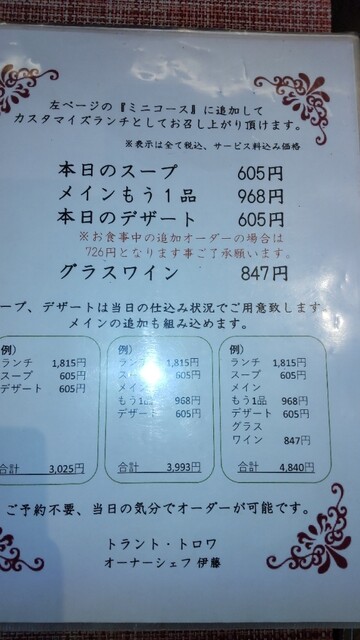 左ページの『ミニコース』に追加して
カスタマイズランチとしてお召し上がり頂けます。
※表示は全て税込、サービス料込み価格
本日のスープ 605円
メインもう1品 968円
本日のデザート 605円
※お食事中の追加オーダーの場合は
726円となります事ご了承願います。
グラスワイン 847円
ープ、デザートは当日の仕込み状況でご用意致します
メインの追加も組み込めます。
例)
ランチ 1,815円
スープ 605円
デザート 605円
合計 3,025円
例)
ランチ 1,815円
スープ 605円
メイン
もう1品 968円
デザート 605円
合計 3,993円
例)
ランチ 1,815円
スープ 605円
メイン
もう1品 968円
デザート 605円
グラス
ワイン 847円
合計 4,840円
ご予約不要、当日の気分でオーダーが可能です。
トラント・トロワ
オーナーシェフ 伊藤